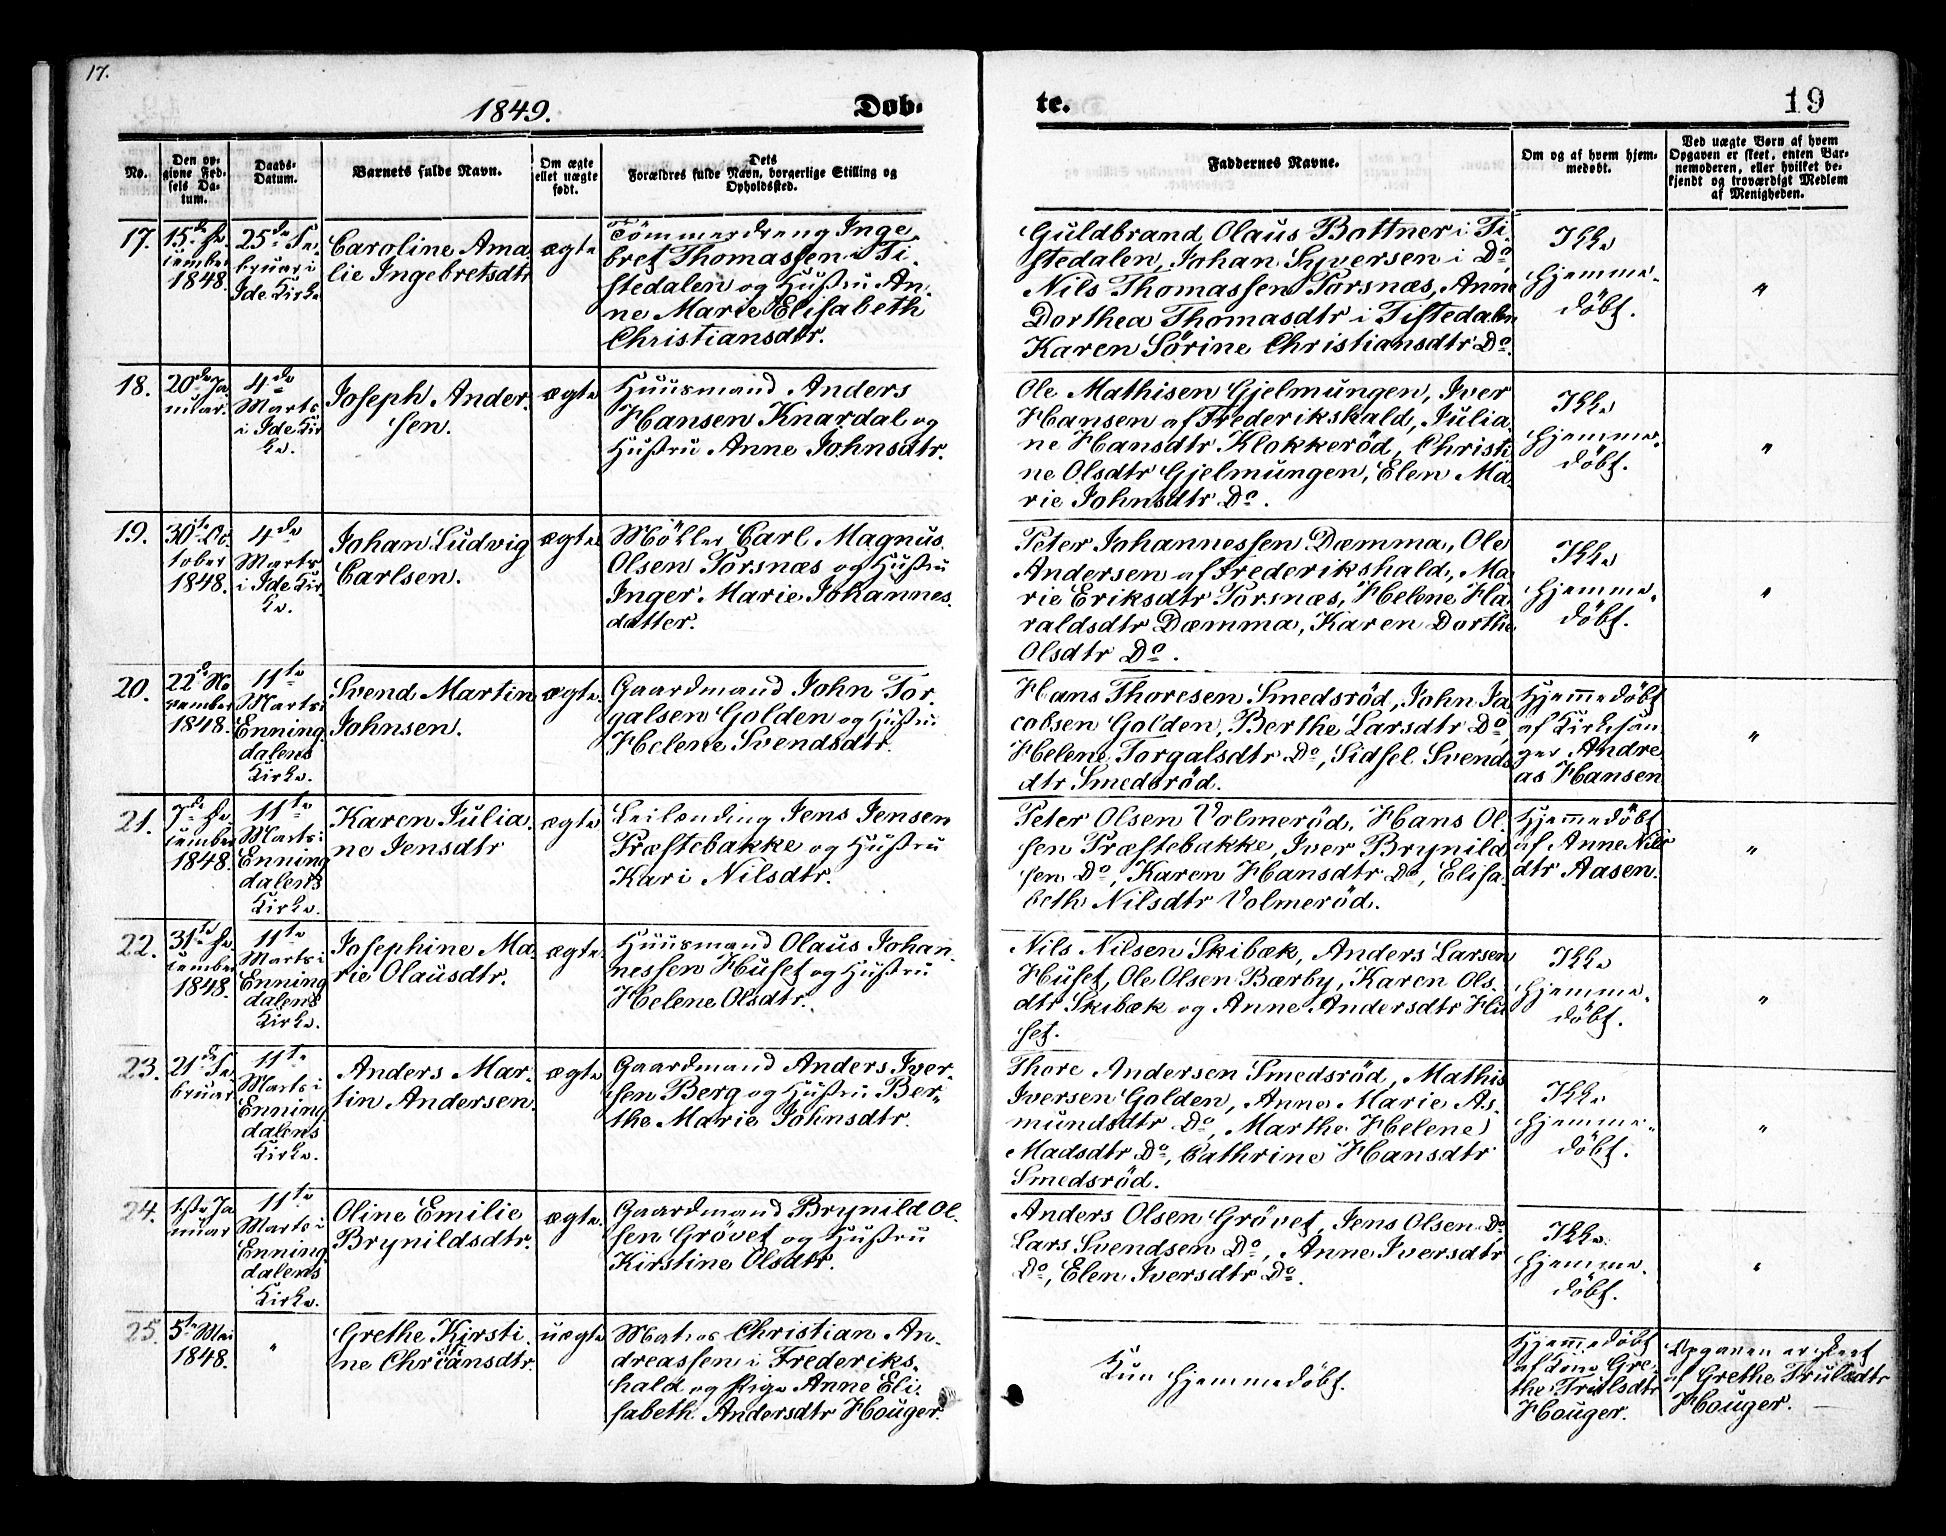 17.
1849.
Døb-
te.
19
No.
Den op-
givne Fød-
sels Da-
tum.
Daabs-
Datum.
Barnets fulde Navn.
Om ægte
ellet uægte
født.
Dets
Forældres fulde Navn, borgerlige Stilling og
Opholdssted.
Faddernes Navne.
Om og af hvem hjem-
medøbt.
Ved uægte Børn af hvem
Opgaven er skeet, enten Bar-
nemoderen, eller hvilket be-
kjendt og troværdigt Medlem
af Menigheden.
17.
15de De-
cember
1848.
25de Fe-
bruar i
Ide Kirke
Caroline Ama-
lie Ingebretsdtr
ægte
Tömmerdreng Inge-
bret Thomassen i Ti-
stedalen og Hustru An-
ne Marie Elisabeth
Christiansdtr.
Guldbrand Olaus Bottner i Ti-
stedalen, Johan Syversen i Do,
Nils Thomassen Torsnæs, Anne
Dorthea Thomasdtr i Tistedalen
Karen Sörine Christiansdtr Do.
Ikke
hjemme-
döbt.
"
18.
20de Ja-
nuar.
4de
Marts
i Ide Kir-
ke.
Joseph Ander-
sen.
ægte
Huusmand Anders
Hansen Knardal og
Hustru Anne Johnsdtr.
Ole Mathisen Gjelmungen, Iver
Hansen af Frederikshald, Julia-
ne Hansdtr Klokkeröd, Christi-
ne Olsdtr Gjelmungen, Elen Ma-
rie Johnsdtr Do.
Ikke
hjemme-
döbt.
"
19.
30te Oc-
tober
1848.
4de
Marts
i Ide Kir-
ke.
Johan Ludvig
Carlsen.
ægte
Möller Carl Magnus
Olsen Torsnæs og Hustru
Inger Marie Johannes-
datter.
Peter Johannessen Dæmma, Ole
Andersen af Frederikshald, Ma-
rie Eriksdtr Torsnæs, Helene Ha-
raldsdtr Dæmma, Karen Dorthe
Olsdtr Do.
Ikke
hjemme-
döbt.
"
20.
22de No-
vember
1848.
11te
Marts i
Enning-
dalens
Kirke.
Svend Martin
Johnsen.
ægte
Gaardmand John Tor-
galsen Golden og Hustru
Helene Svendsdtr.
Hans Thoresen Smedsröd, John Ja-
cobsen Golden, Berthe Larsdtr Do,
Helene Torgalsdtr Do, Sidsel Svends-
dtr Smedsröd.
Hjemmedöbt
af Kirkesan-
ger Andre-
as Hansen
"
21.
7de De-
cember
1848.
11te
Marts i
Enning-
dalens
Kirke.
Karen Julia-
ne Jensdtr
ægte
Leilænding Jens Jensen
Præstebakke og Hustru
Kari Nilsdtr.
Peter Olsen Volmeröd, Hans Ol-
sen Præstebakke, Iver Brynild-
sen Do, Karen Hansdtr Do, Elisa-
beth Nilsdtr Volmeröd.
Hjemmedöbt
af Anne Nils-
dtr Aasen.
"
22.
31te De-
cember
1848.
11te
Marts i
Enning-
dalens
Kirke.
Josephine Ma-
rie Olausdtr.
ægte
Huusmand Olaus Johan-
nessen Huset og Hustru
Helene Olsdtr.
Nils Nilsen Skibæk, Anders Larsen
Huset, Ole Olsen Bærby, Karen Ols-
dtr Skibæk og Anne Andersdtr Hu-
set.
Ikke
hjemme-
döbt.
"
23.
21de Fe-
bruar
11te
Marts i
Enning-
dalens
Kirke.
Anders Mar-
tin Andersen.
ægte
Gaardmand Anders Iver-
sen Berg og Hustru Ber-
the Marie Johnsdtr.
Thore Andersen Smedsröd, Mathis
Iversen Golden, Anne Marie As-
mundsdtr Do, Marthe Helene
Madsdtr Do, Cathrine Hansdtr
Smedsröd.
Ikke
hjemme-
döbt.
"
24.
1ste Ja-
nuar
11te
Marts i
Enning-
dalens
Kirke.
Oline Emilie
Brynildsdtr.
ægte
Gaardmand Brynild Ol-
sen Grövet og Hustru
Kirstine Olsdtr.
Anders Olsen Grövet, Jens Olsen Do
Lars Svendsen Do, Anne Iversdtr
Do, Elen Iversdtr Do.
Ikke
hjemme-
döbt.
"
25.
5te Mai
1848.
"
Grethe Kirsti-
ne Christiansdtr.
uægte
Matros Christian An-
dreassen i Frederiks-
hald og Pige Anne Eli-
sabeth Andersdtr Houger.
Kun hjemmedöbt.
Hjemmedöbt
af Kone Gre-
the Trulsdtr
Houger.
Opgaven er skeet
af Grethe Trulsdtr
Houger.